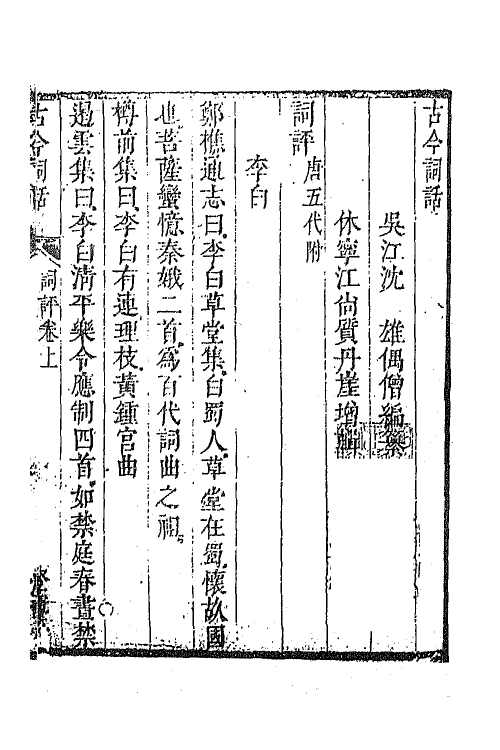 古今詞話
吳江沈 雄偶僧編纂
休寧江尙質丹崖增輯
詞評唐五代附
李白
鄭樵通志曰李白草堂集白蜀人草堂在蜀懷故國
也菩薩蠻憶秦娥二首爲百代詞曲之祖
樽前集曰李白有連理枝黃鍾宮曲
遏雲集曰李白淸平樂令應制四首如禁庭春晝禁
古今詞話
詞評卷上